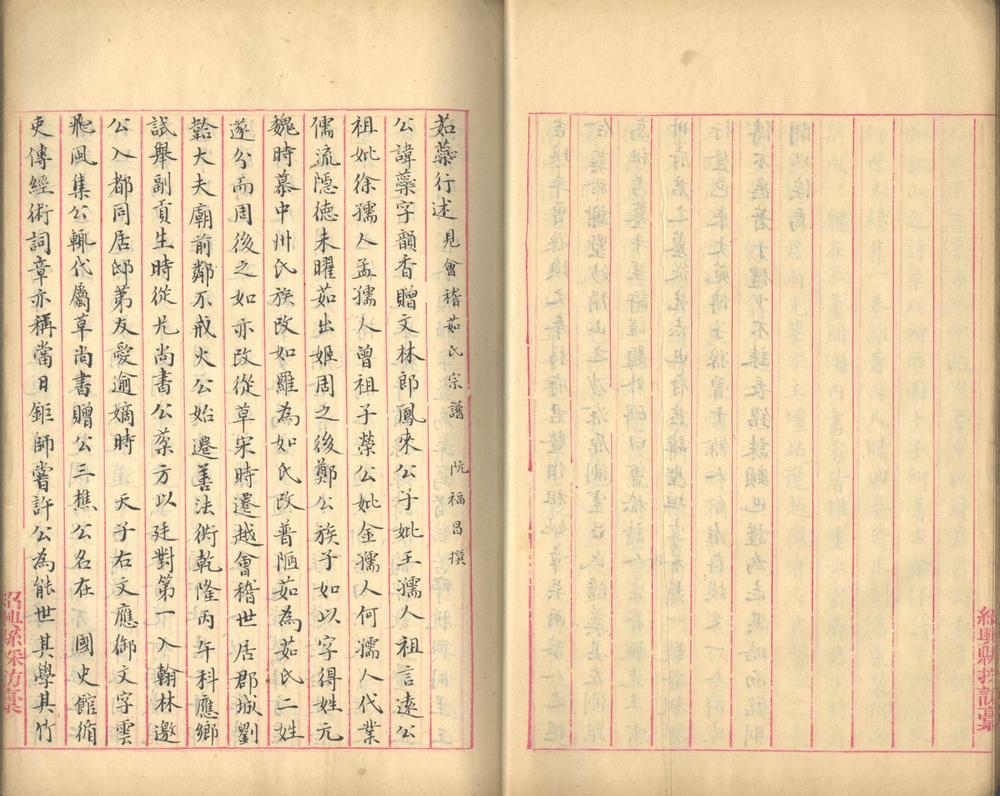 茹蘂行述 見會稽茹氏宗譜 阮福昌撰
公諱蘂字韻香贈文林郎鳳來公子妣王孺人祖言遠公
祖妣徐孺人孟孺人曾祖子榮公妣金孺人何孺人代業
儒流隱德未曜茹出姬周之後鄭公族子如以字得姓元
魏時慕中州氏族改如羅為如氏改普陋茹為茹氏二姓
遂分而周後之如亦改從草宋時遷越會稽世居郡城劉
韐大夫廟前鄰不戒火公始遷善法衖乾隆丙午科應鄉
試舉副貢生時從兄尚書公棻方以廷對第一入翰林邀
公入都同居邸第友愛逾嫡時 天子右文應御文字雲
飛風集公輒代屬草尚書贈公三樵公名在 國史館循
吏傳經術詞章亦稱當日鉅師嘗許公為能世其學其竹
紹興縣採訪稾
紹興縣採訪稾